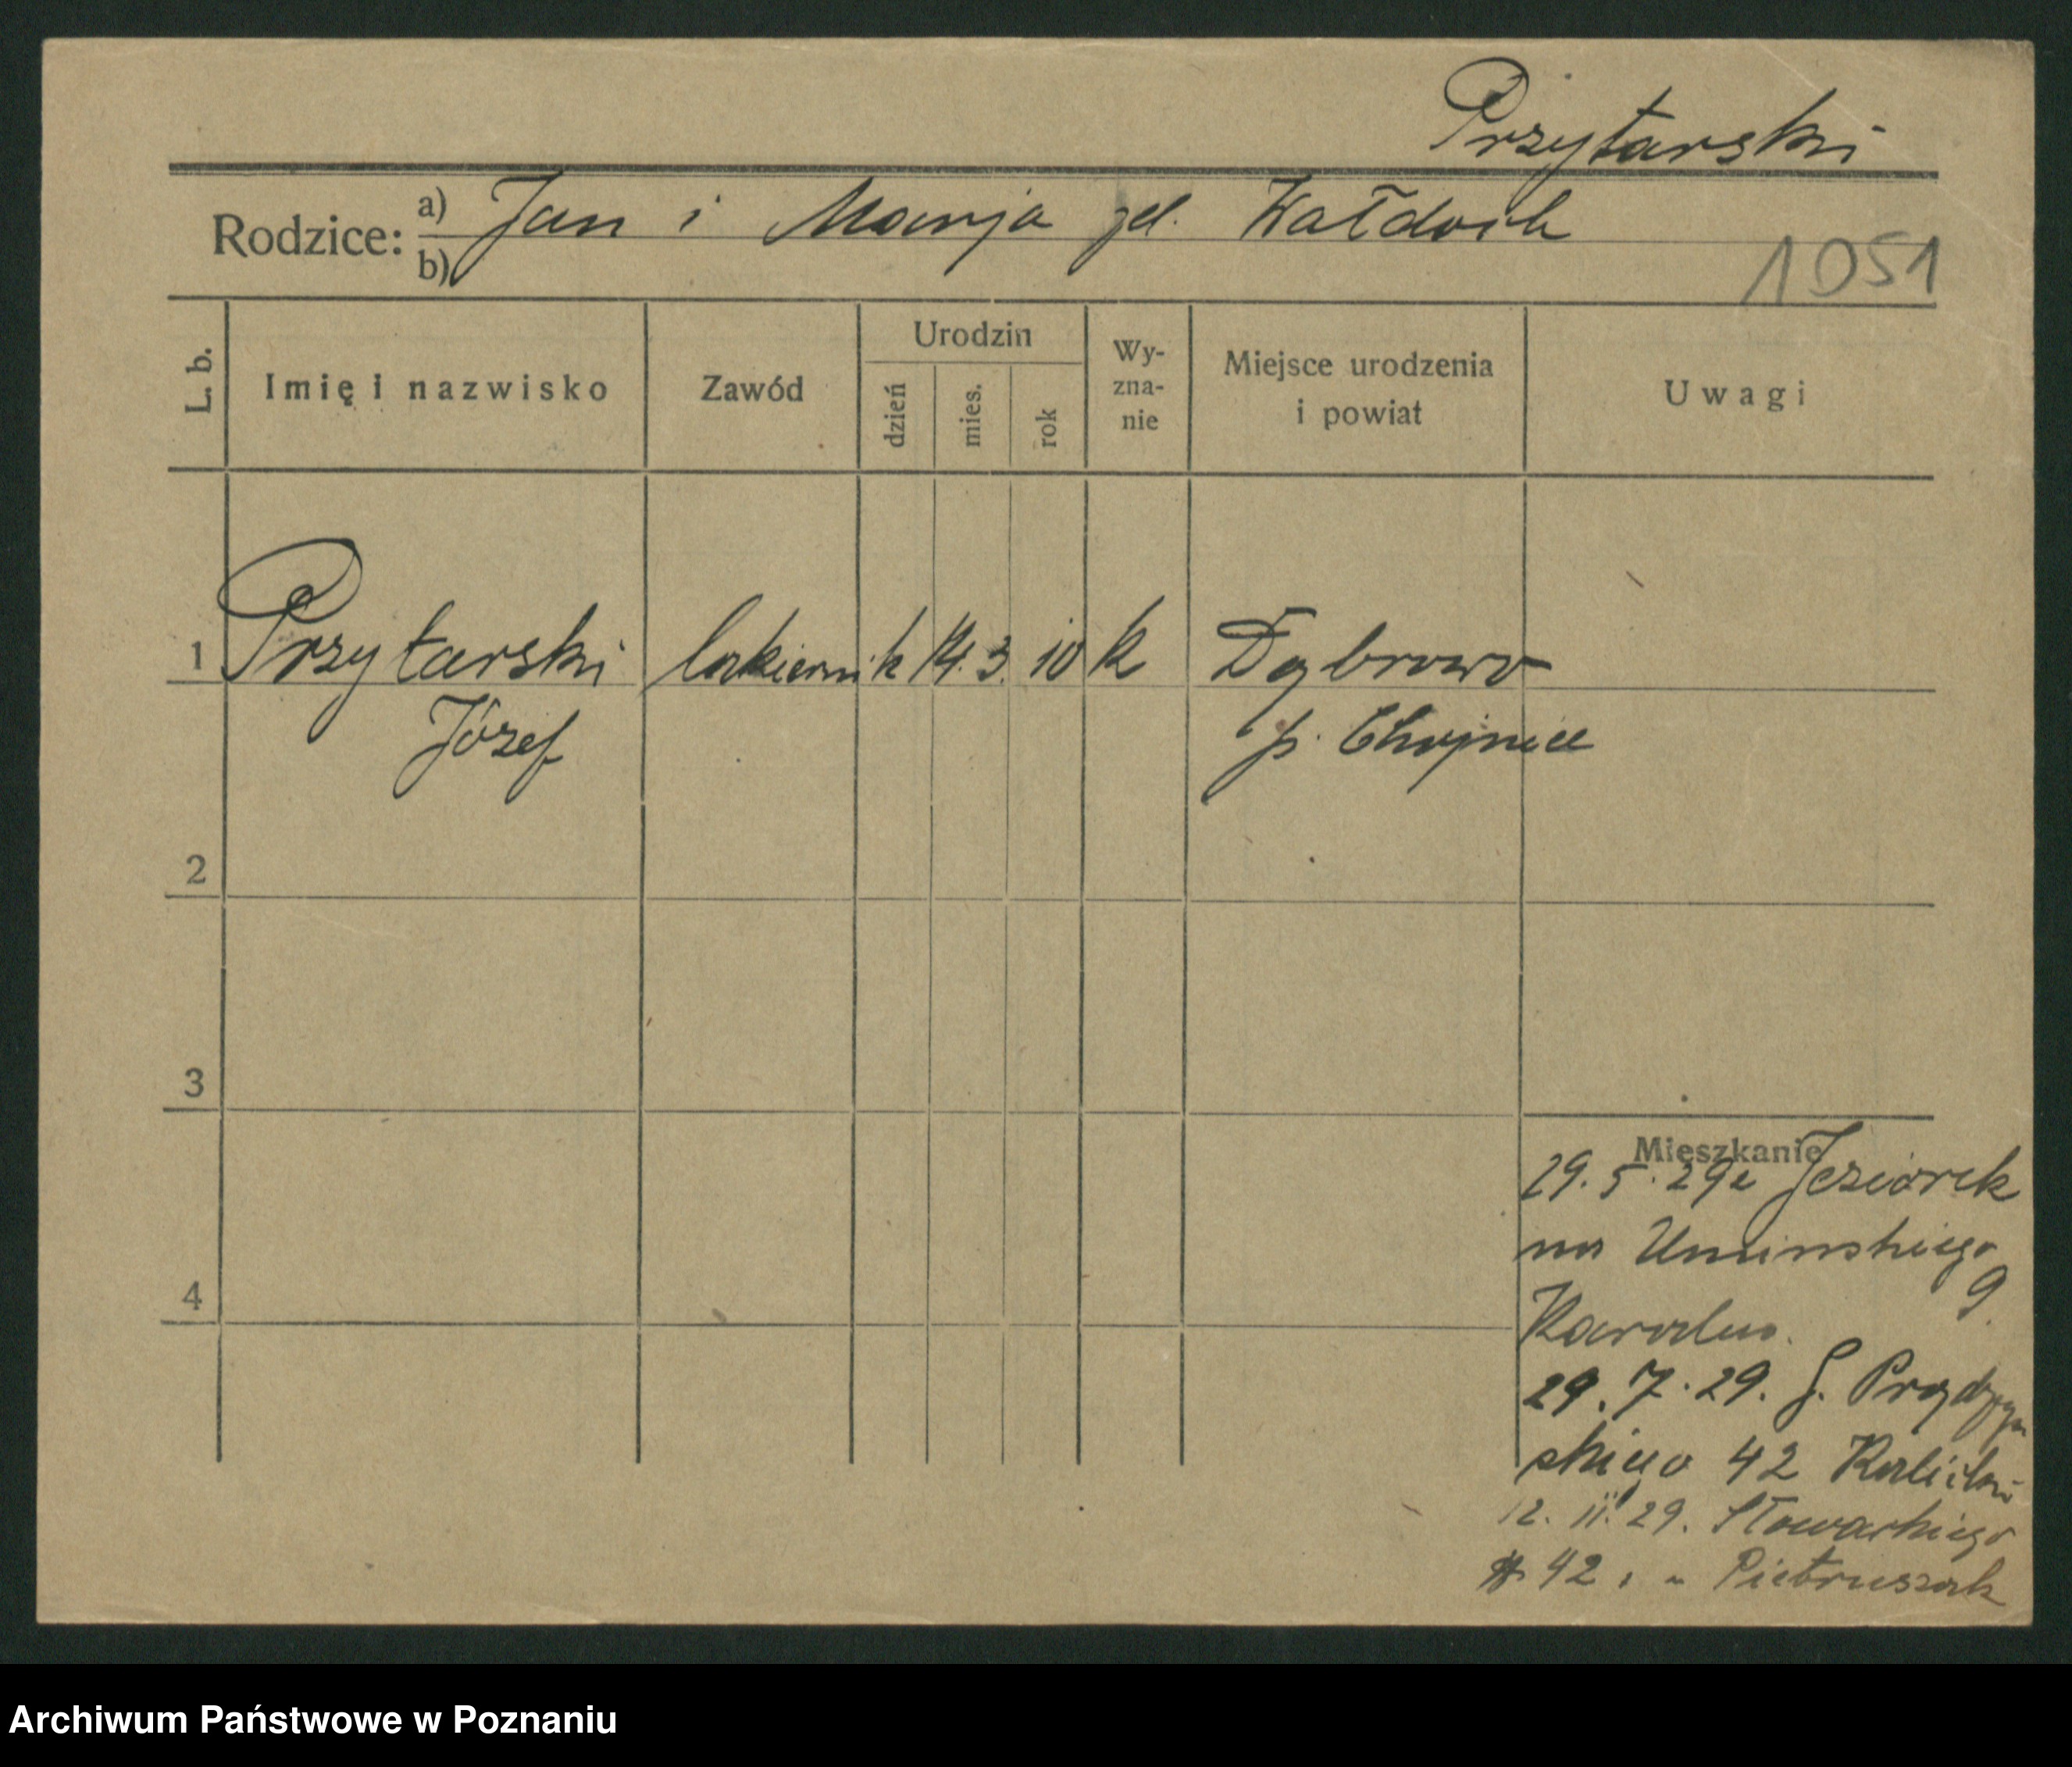 Przytarski
Rodzice: a) Jan i Marja zd. Wałdoch
b)
1051
L. b.
Imię i nazwisko
Zawód
Urodzin
dzień
mies.
rok
Wy-
zna-
nie
Miejsce urodzenia
i powiat
Uwagi
1 Przytarski lakiernik 14. 3. 10 k Dąbrowa
Józef p. Chojnice
2
3
4
Mieszkanie
29. 5. 29 z Jeziorek
na Umińskiego
9.
29. 7. 29. Prądzyń
skiego 42
12. 11. 29. Słowackiego
42 Pietruszak
Archiwum Państwowe w Poznaniu